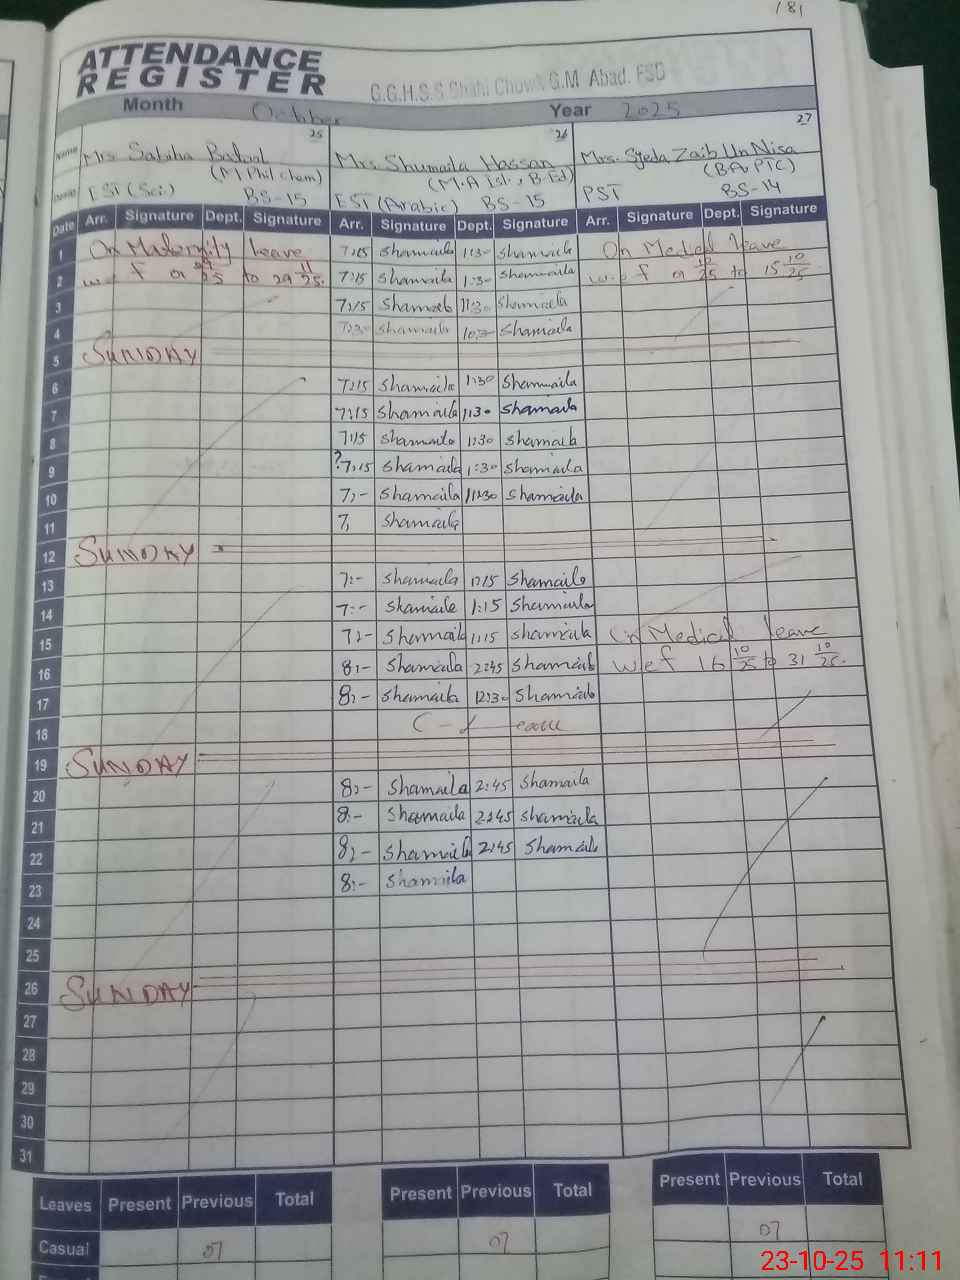 181
ATTENDANCE
REGISTER
G.G.H.S.S Shahi Chowk G.M Abad. FSD
Month October Year 2025
25 26 27
Name Mrs Sabiha Mrs. Shumaila Hassan Mrs. Syeda Zaib Un Nisa
(M Phil chem) (M.A Isl., B.Ed) (BA, PTC)
EST (Sci) BS-15 EST (Arabic) BS-15 PST BS-14
Date Arr. Signature Dept. Signature Arr. Signature Dept. Signature Arr. Signature Dept. Signature
1 On Maternity Leave 7:15 Shamaila 1:30 Shamaila On Medical leave
2 wef to 29 11/25. 7:15 Shamaila 1:30 Shamaila wef 9 10/25 to 15 10/25.
3 7:15 Shamaila 11:30 Shamaila
4 7:30 Shamaila Shamaila
5 SUNDAY
6 7:15 Shamaila 1:30 Shamaila
7 7:15 Shamaila 1:30 Shamaila
8 7:15 Shamaila 1:30 Shamaila
9 ?7:15 Shamaila 1:30 Shamaila
10 7:- Shamaila 11:30 Shamaila
11 7: Shamaila
12 SUNDAY
13 7:- Shamaila 1:15 Shamaila
14 7:- Shamaila 1:15 Shamaila
15 7:- Shamaila 1:15 Shamaila On Medical leave
16 8:- Shamaila 2:45 Shamaila wef 16 10/25 to 31 10/25.
17 8:- Shamaila 12:30 Shamaila
18 C-Leave
19 SUNDAY
20 8:- Shamaila 2:45 Shamaila
21 8:- Shamaila 2:45 Shamaila
22 8:- Shamaila 2:45 Shamaila
23 8:- Shamaila
24
25
26 SUNDAY
27
28
29
30
31
Leaves Present Previous Total Present Previous Total Present Previous Total
Casual 07 07 07
23-10-25 11:11